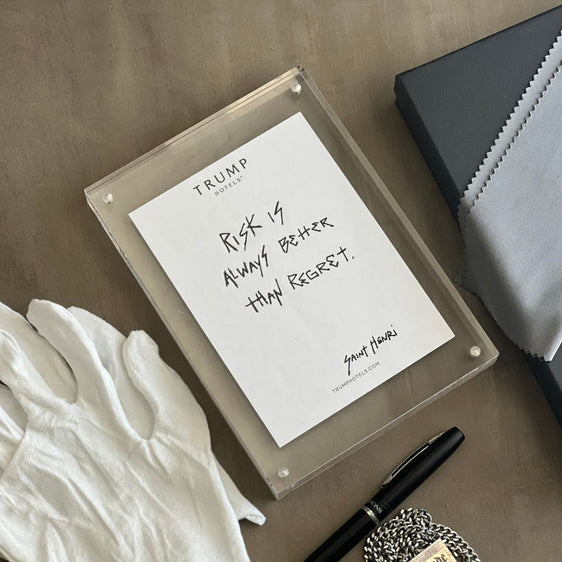 TRUMP
HOTELS™
RISK IS
ALWAYS BETTER
THAN REGRET.
SAINT HENRI
TRUMPHOTELS.COM